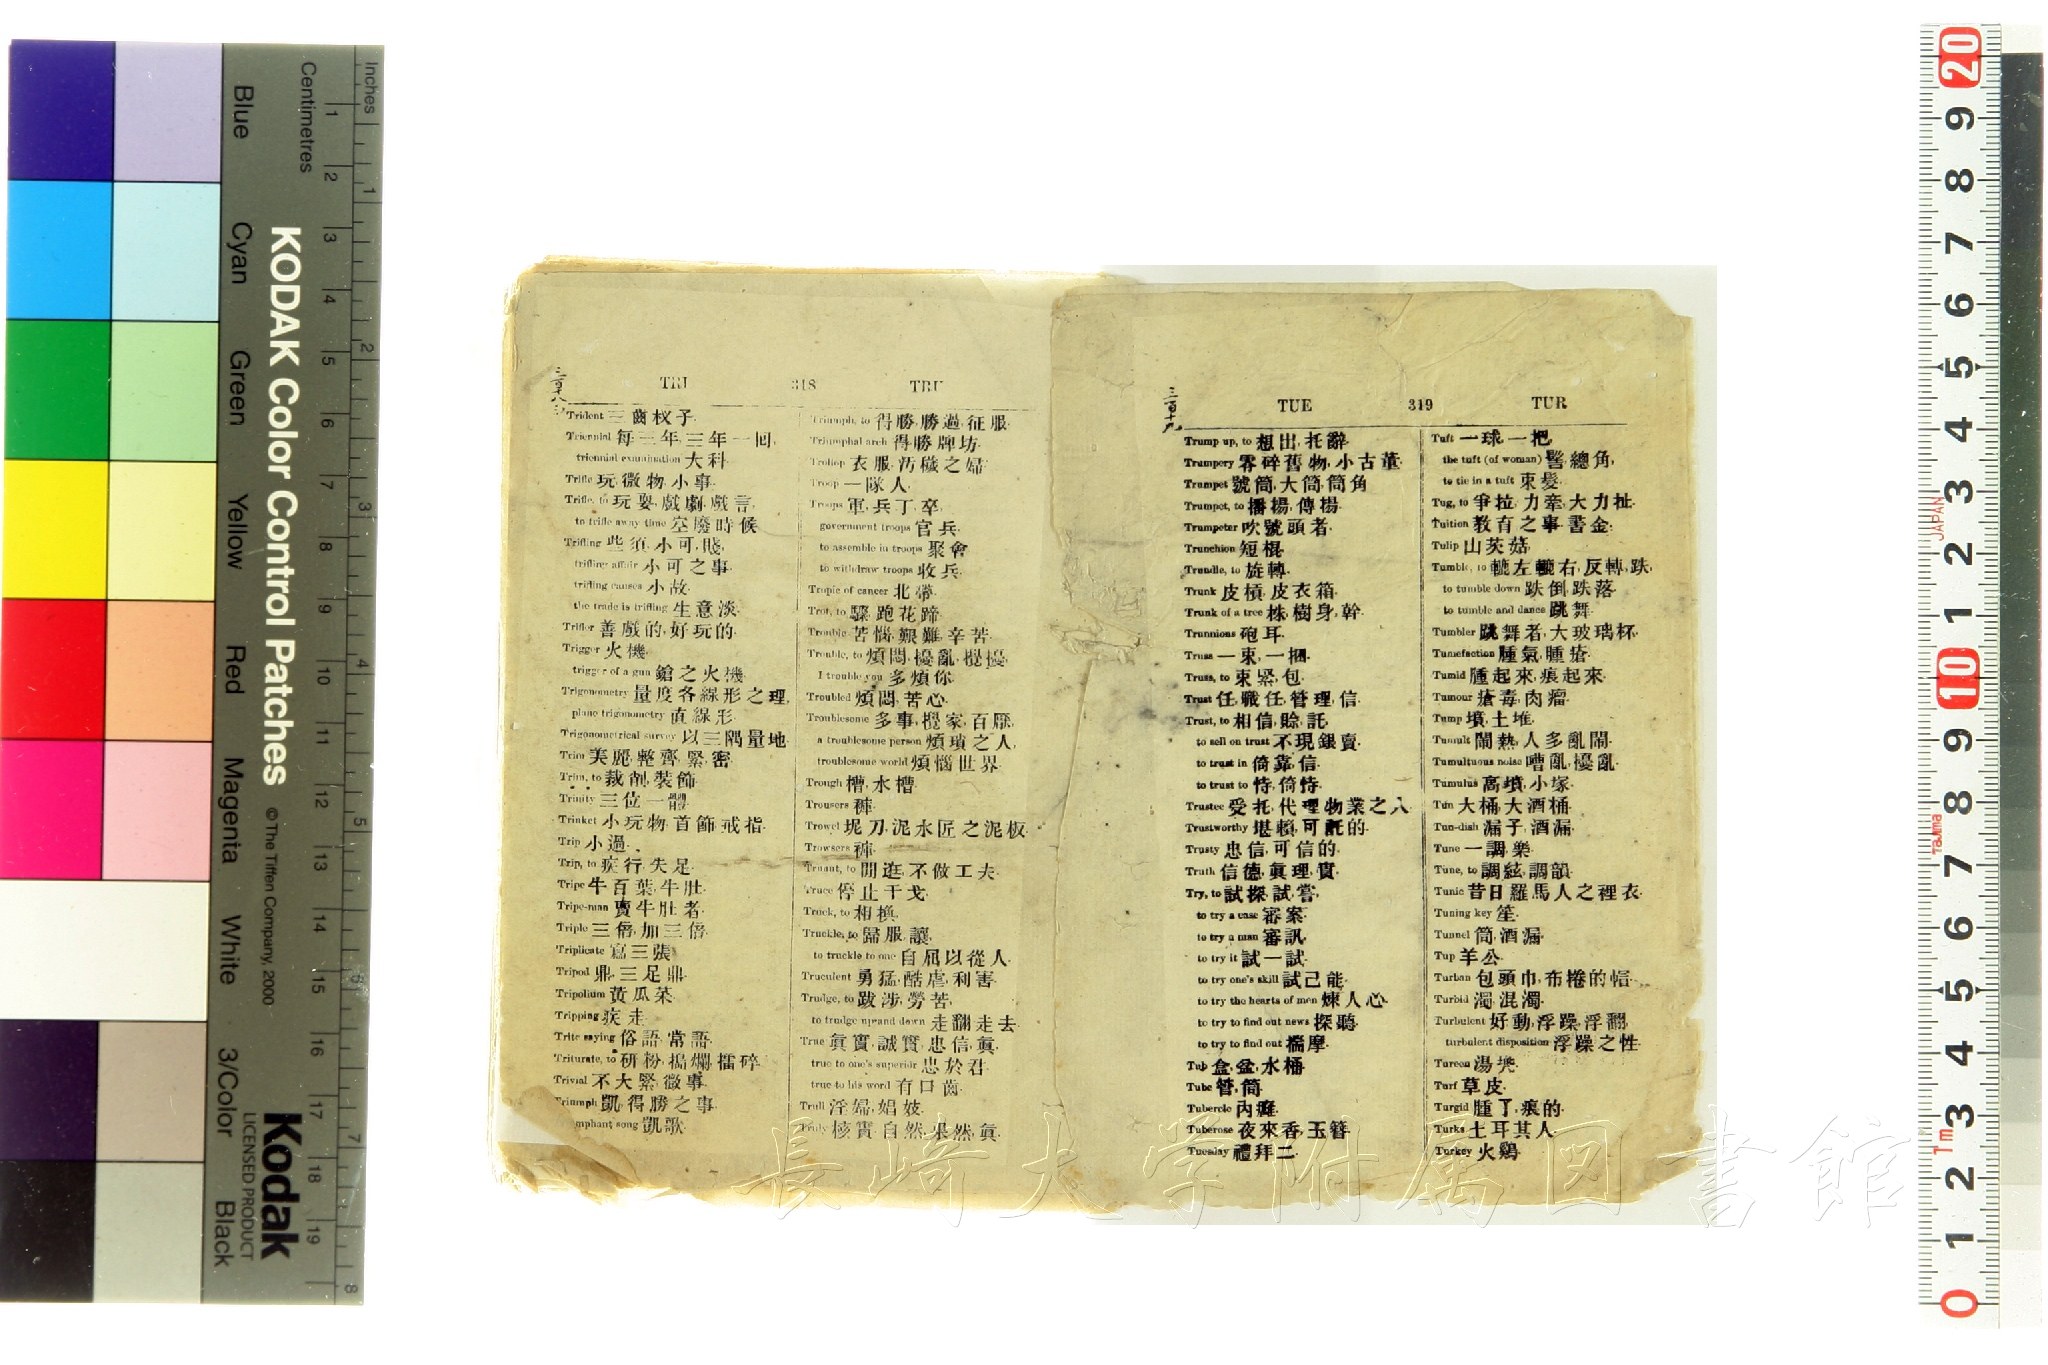 Blue
Cyan
Green
Yellow
Red
Magenta
White
3/Color
Black
Centimetres
Inches
KODAK Color Control Patches
© The Tiffen Company, 2000
Kodak
LICENSED PRODUCT
三百十八
TRI 318 TRU
Trident 三齒杈子
Triennial 每三年,三年一回,
triennial examination 大科
Trifle 玩,微物,小事
Trifle, to 玩耍,戲劇,戲言
to trifle away time 空廢時候
Trifling 些須,小可,賤,
trifling affair 小可之事
trifling causes 小故
the trade is trifling 生意淡
Trifler 善戲的,好玩的
Trigger 火機
trigger of a gun 鎗之火機
Trigonometry 量度各線形之理,
plane trigonometry 直線形
Trigonometrical survey 以三隅量地
Trim 美麗,整齊,緊,密
Trim, to 裁削,裝飾
Trinity 三位一體
Trinket 小玩物,首飾,戒指
Trip 小過
Trip, to 疾行,失足
Tripe 牛百葉,牛肚
Tripe-man 賣牛肚者
Triple 三倍,加三倍
Triplicate 寫三張
Tripod 鼎,三足鼎
Tripolium 黃瓜菜
Tripping 疾走
Trite saying 俗語,常語
Triturate, to 研粉,搗爛,擂碎
Trivial 不大緊,微事
Triumph 凱,得勝之事
mphant song 凱歌
Triumph, to 得勝,勝過,征服
Triumphal arch 得勝牌坊
Trollop 衣服汚穢之婦
Troop 一隊人
Troops 軍,兵丁,卒
government troops 官兵
to assemble in troops 聚會
to withdraw troops 收兵
Tropic of cancer 北帶
Trot, to 驟,跑花蹄
Trouble 苦惱,艱難,辛苦
Trouble, to 煩悶,擾亂,攪擾
I trouble you 多煩你
Troubled 煩悶,苦心
Troublesome 多事,攪家,百厭
a troublesome person 煩瑣之人,
troublesome world 煩惱世界
Trough 槽,水槽
Trousers 褲
Trowel 坭刀,泥水匠之泥板
Trowsers 褲
Truant, to 閒逛,不做工夫
Truce 停止干戈
Truck, to 相換
Truckle, to 歸服,讓,
to truckle to one 自屈以從人
Truculent 勇猛,酷虐,利害
Trudge, to 跋涉,勞苦
to trudge up and down 走翻走去
True 眞實,誠實,忠信,眞
true to one's superior 忠於君
true to his word 有口齒
Trull 淫婦,娼妓
Truly 核實,自然,果然,眞
三百十九
TUE 319 TUR
Trump up, to 想出,托辭
Trumpery 零碎舊物,小古董
Trumpet 號筒,大筒,筒角
Trumpet, to 播楊,傳楊
Trumpeter 吹號頭者
Trunchion 短棍
Trundle, to 旋轉
Trunk 皮槓,皮衣箱
Trunk of a tree 株,樹身,幹
Trunnions 砲耳
Truss 一束,一捆
Truss, to 束緊,包
Trust 任,職任,管理,信
Trust, to 相信,賒,託
to sell on trust 不現銀賣
to trust in 倚靠,信
to trust to 恃,倚恃
Trustee 受托,代理物業之人
Trustworthy 堪賴,可託的
Trusty 忠信,可信的
Truth 信德,眞理,實
Try, to 試,探,試,嘗
to try a case 審案
to try a man 審訊
to try it 試一試
to try one's skill 試己能
to try the hearts of men 煉人心
to try to find out news 探聽
to try to find out 揣摩
Tub 盒,盆,水桶
Tube 管,筒
Tubercle 內癰
Tuberose 夜來香,玉簪
Tuesday 禮拜二
Tuft 一球,一把
the tuft (of woman) 髻,總角,
to tie in a tuft 束髮
Tug, to 爭拉,力牽,大力扯
Tuition 教育之事,書金
Tulip 山茨菇
Tumble, to 轆左轆右,反轉,跌,
to tumble down 跌倒,跌落
to tumble and dance 跳舞
Tumbler 跳舞者,大玻璃杯
Tumefaction 腫氣,腫瘡
Tumid 腫起來,痕起來
Tumour 瘡毒,肉瘤
Tump 墳,土堆
Tumult 鬧熱,人多亂鬧
Tumultuous noise 嘈亂,擾亂
Tumulus 高墳,小塚
Tun 大桶,大酒桶
Tun-dish 漏子,酒漏
Tune 一調,樂
Tune, to 調絃,調韻
Tunic 昔日羅馬人之裡衣
Tuning key 笙
Tunnel 筒,酒漏
Tup 羊公
Turban 包頭巾,布捲的帽
Turbid 濁,混濁
Turbulent 好動,浮躁,浮翻
turbulent disposition 浮躁之性
Tureen 湯
Turf 草皮
Turgid 腫了,痕的
Turks 土耳其人
Turkey 火鷄
長崎大学附属図書館
JAPAN
Tajima
1m